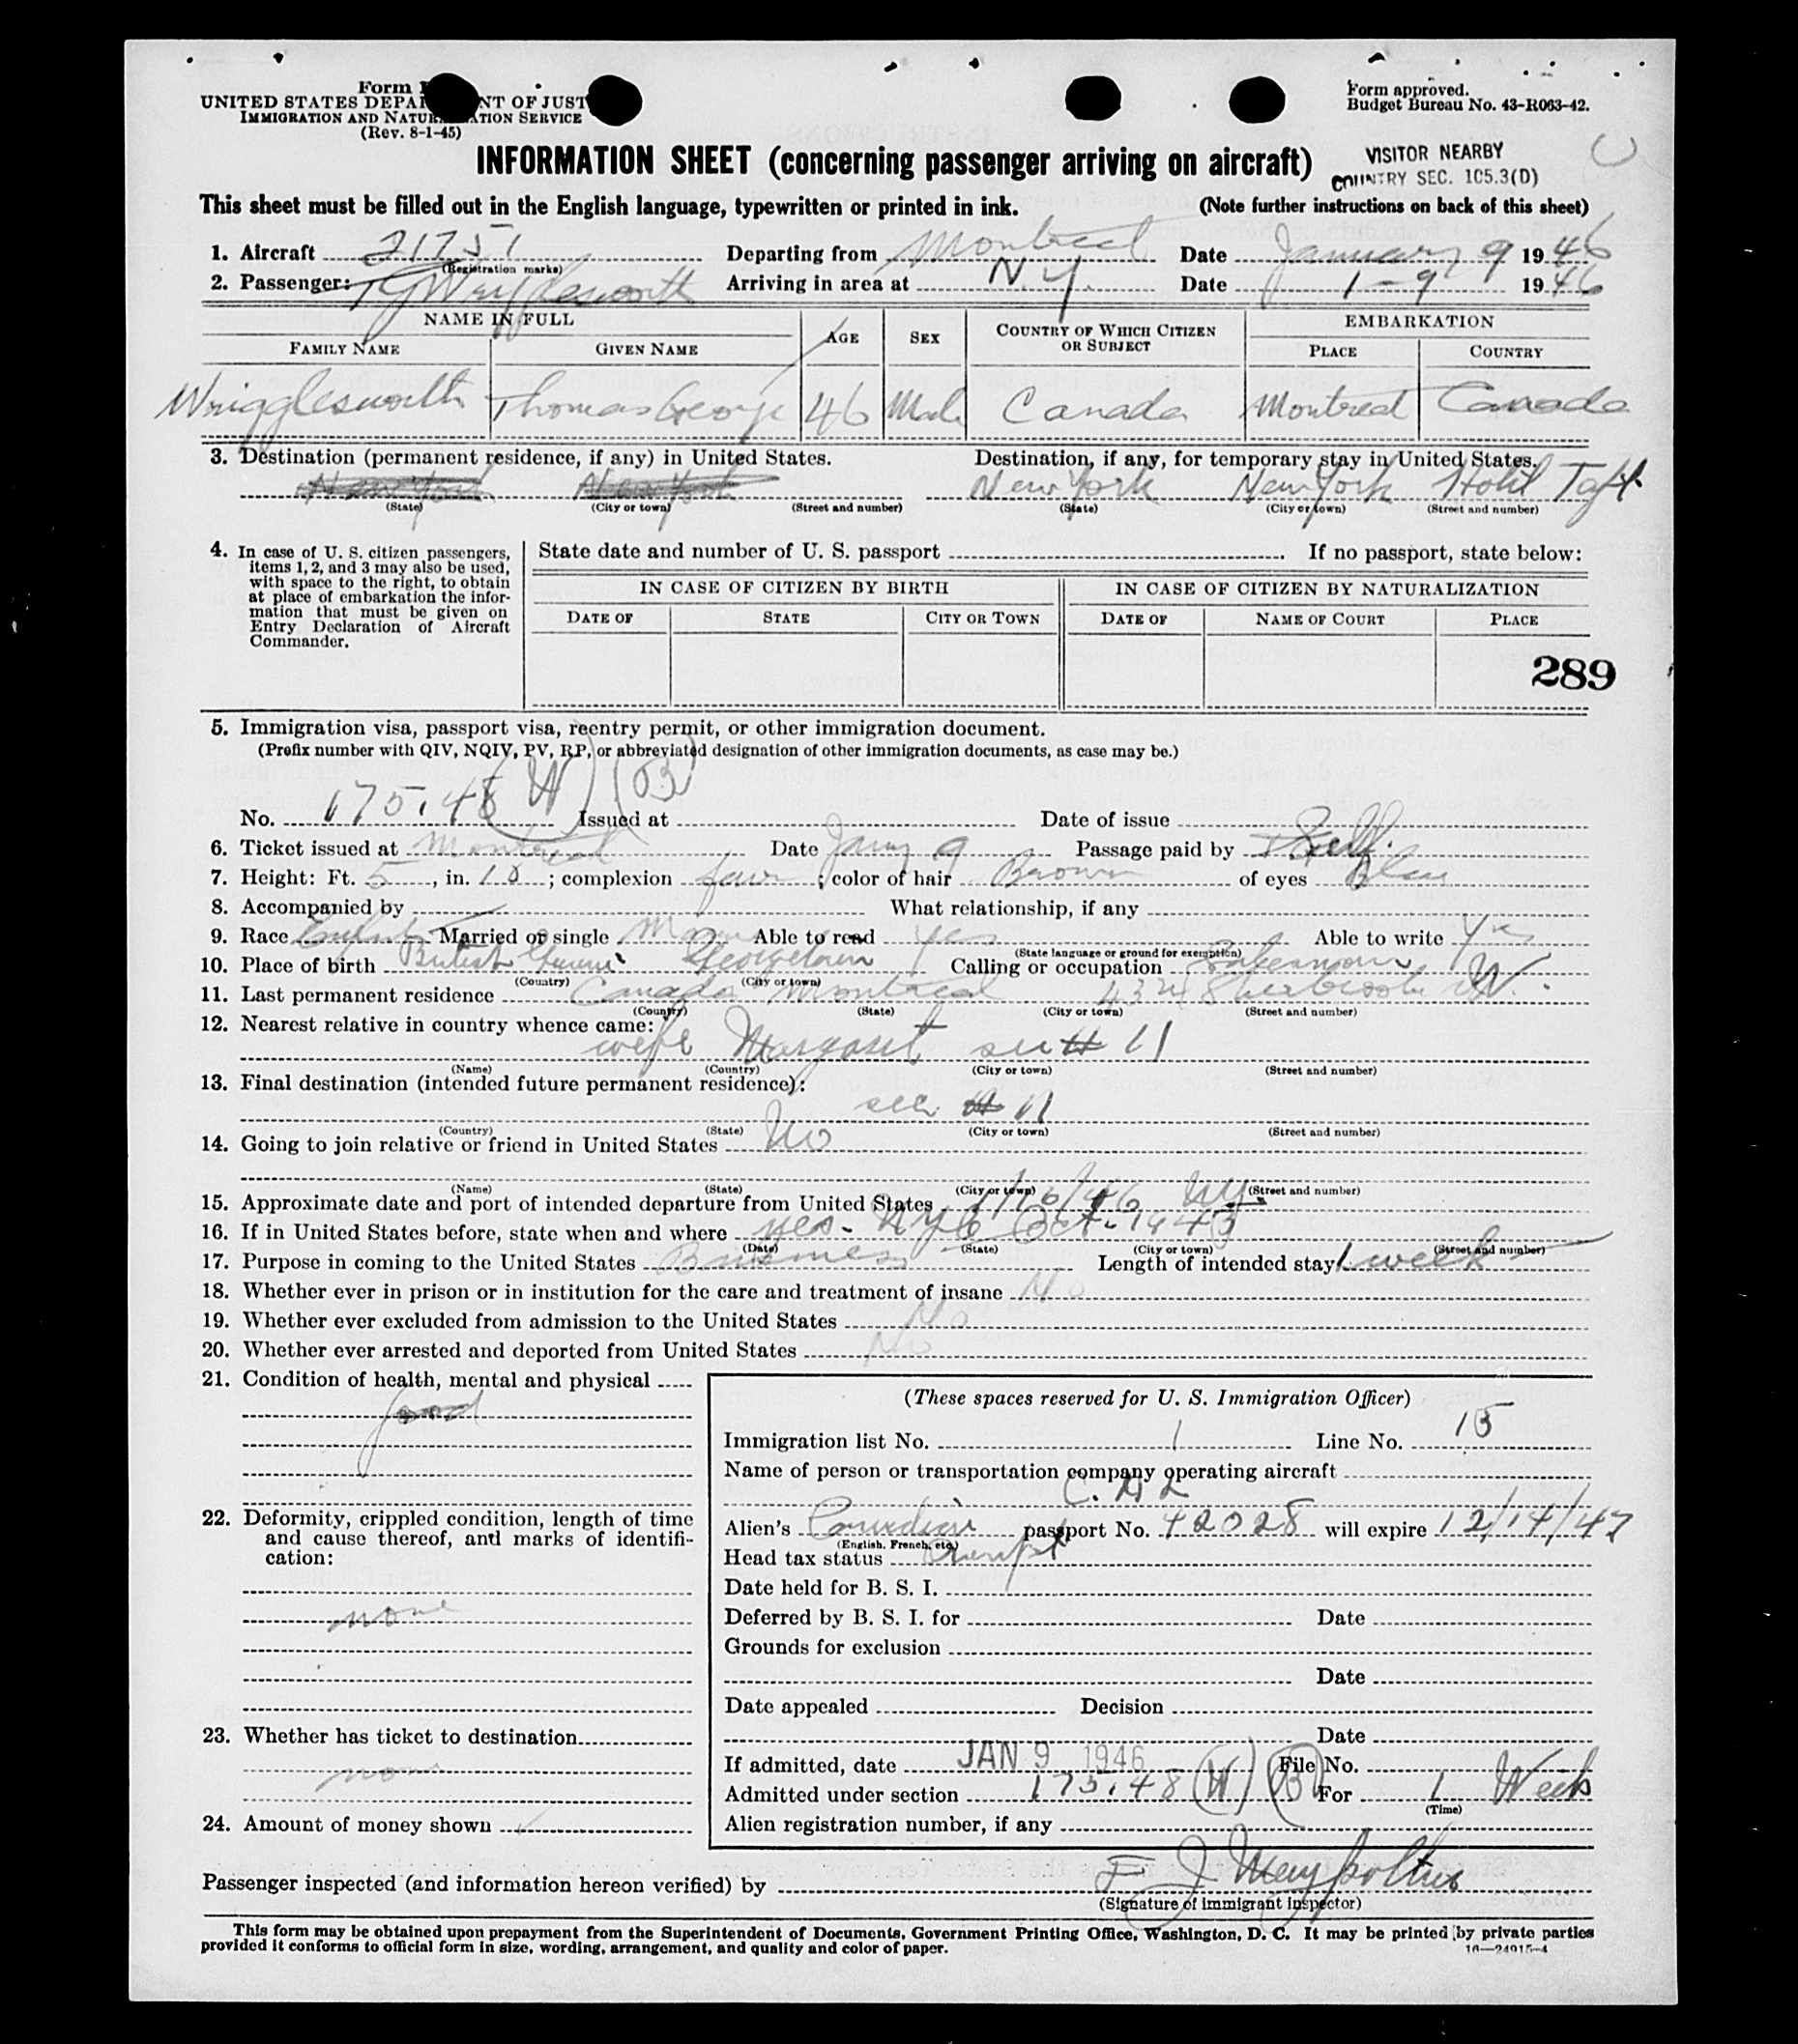 Form
UNITED STATES DEPA NT OF JUST
IMMIGRATION AND NATUR ATION SERVICE
(Rev. 8-1-45)
Form approved.
Budget Bureau No. 43-R063-42.
INFORMATION SHEET (concerning passenger arriving on aircraft)
VISITOR NEARBY
COUNTRY SEC. 105.3(D)
This sheet must be filled out in the English language, typewritten or printed in ink. (Note further instructions on back of this sheet)
1. Aircraft 21751 Departing from Montreal Date January 9 1946
(Registration marks)
2. Passenger: T G Wrigglesworth Arriving in area at N.Y. Date 1-9 1946
NAME IN FULL AGE SEX COUNTRY OF WHICH CITIZEN OR SUBJECT EMBARKATION
FAMILY NAME GIVEN NAME PLACE COUNTRY
Wrigglesworth Thomas George 46 Male Canada Montreal Canada
3. Destination (permanent residence, if any) in United States. Destination, if any, for temporary stay in United States.
New York New York New York New York Hotel Taft
(State) (City or town) (Street and number) (State) (City or town) (Street and number)
4. In case of U. S. citizen passengers,
items 1, 2, and 3 may also be used,
with space to the right, to obtain
at place of embarkation the infor-
mation that must be given on
Entry Declaration of Aircraft
Commander.
State date and number of U. S. passport If no passport, state below:
IN CASE OF CITIZEN BY BIRTH IN CASE OF CITIZEN BY NATURALIZATION
DATE OF STATE CITY OR TOWN DATE OF NAME OF COURT PLACE
289
5. Immigration visa, passport visa, reentry permit, or other immigration document.
(Prefix number with QIV, NQIV, PV, RP, or abbreviated designation of other immigration documents, as case may be.)
No. 175.48 (W) (B) Issued at Date of issue
6. Ticket issued at Montreal Date Jany 9 Passage paid by Self.
7. Height: Ft. 5, in. 10; complexion fair; color of hair Brown of eyes Blue
8. Accompanied by What relationship, if any
9. Race English Married or single M Able to read Yes Able to write Yes
(State language or ground for exemption)
10. Place of birth British Guiana Georgetown Calling or occupation Salesman
(Country) (City or town)
11. Last permanent residence Canada Montreal 4324 Sherbrooke W.
(Country) (State) (City or town) (Street and number)
12. Nearest relative in country whence came:
wife Margaret see # 11
(Name) (Country) (City or town) (Street and number)
13. Final destination (intended future permanent residence):
see # 11
(Country) (State) (City or town) (Street and number)
14. Going to join relative or friend in United States No
(Name) (State) (City or town) (Street and number)
15. Approximate date and port of intended departure from United States 1/16/46 NY.
16. If in United States before, state when and where yes - NYC Oct. 1943
(Date) (State) (City or town) (Street and number)
17. Purpose in coming to the United States Business Length of intended stay 1 week
18. Whether ever in prison or in institution for the care and treatment of insane No
19. Whether ever excluded from admission to the United States No
20. Whether ever arrested and deported from United States No
21. Condition of health, mental and physical
good
22. Deformity, crippled condition, length of time
and cause thereof, and marks of identifi-
cation:
none
23. Whether has ticket to destination
24. Amount of money shown
(These spaces reserved for U. S. Immigration Officer)
Immigration list No. 1 Line No. 15
Name of person or transportation company operating aircraft
Alien's Canadian passport No. 42028 will expire 12/14/47
(English, French, etc.)
Head tax status Exempt
Date held for B. S. I.
Deferred by B. S. I. for Date
Grounds for exclusion
Date
Date appealed Decision
Date
If admitted, date JAN 9 1946 File No.
Admitted under section 175.48 (W) (B) For 1 Week
(Time)
Alien registration number, if any
Passenger inspected (and information hereon verified) by F J
(Signature of immigrant inspector)
This form may be obtained upon prepayment from the Superintendent of Documents, Government Printing Office, Washington, D. C. It may be printed by private parties
provided it conforms to official form in size, wording, arrangement, and quality and color of paper.
16—24915-4